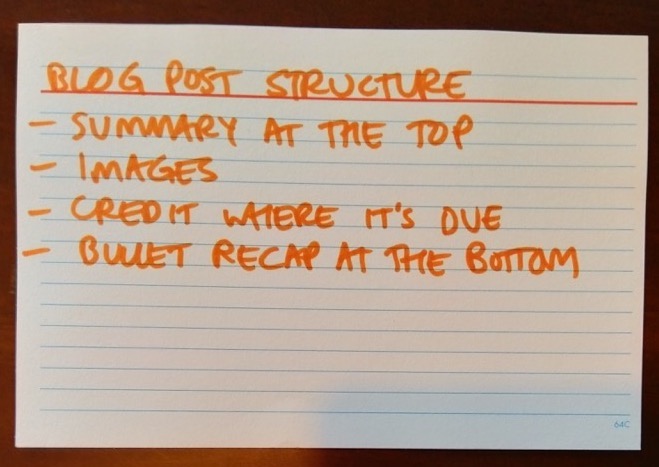 BLOG POST STRUCTURE
- SUMMARY AT THE TOP
- IMAGES
- CREDIT WHERE IT'S DUE
- BULLET RECAP AT THE BOTTOM
64C